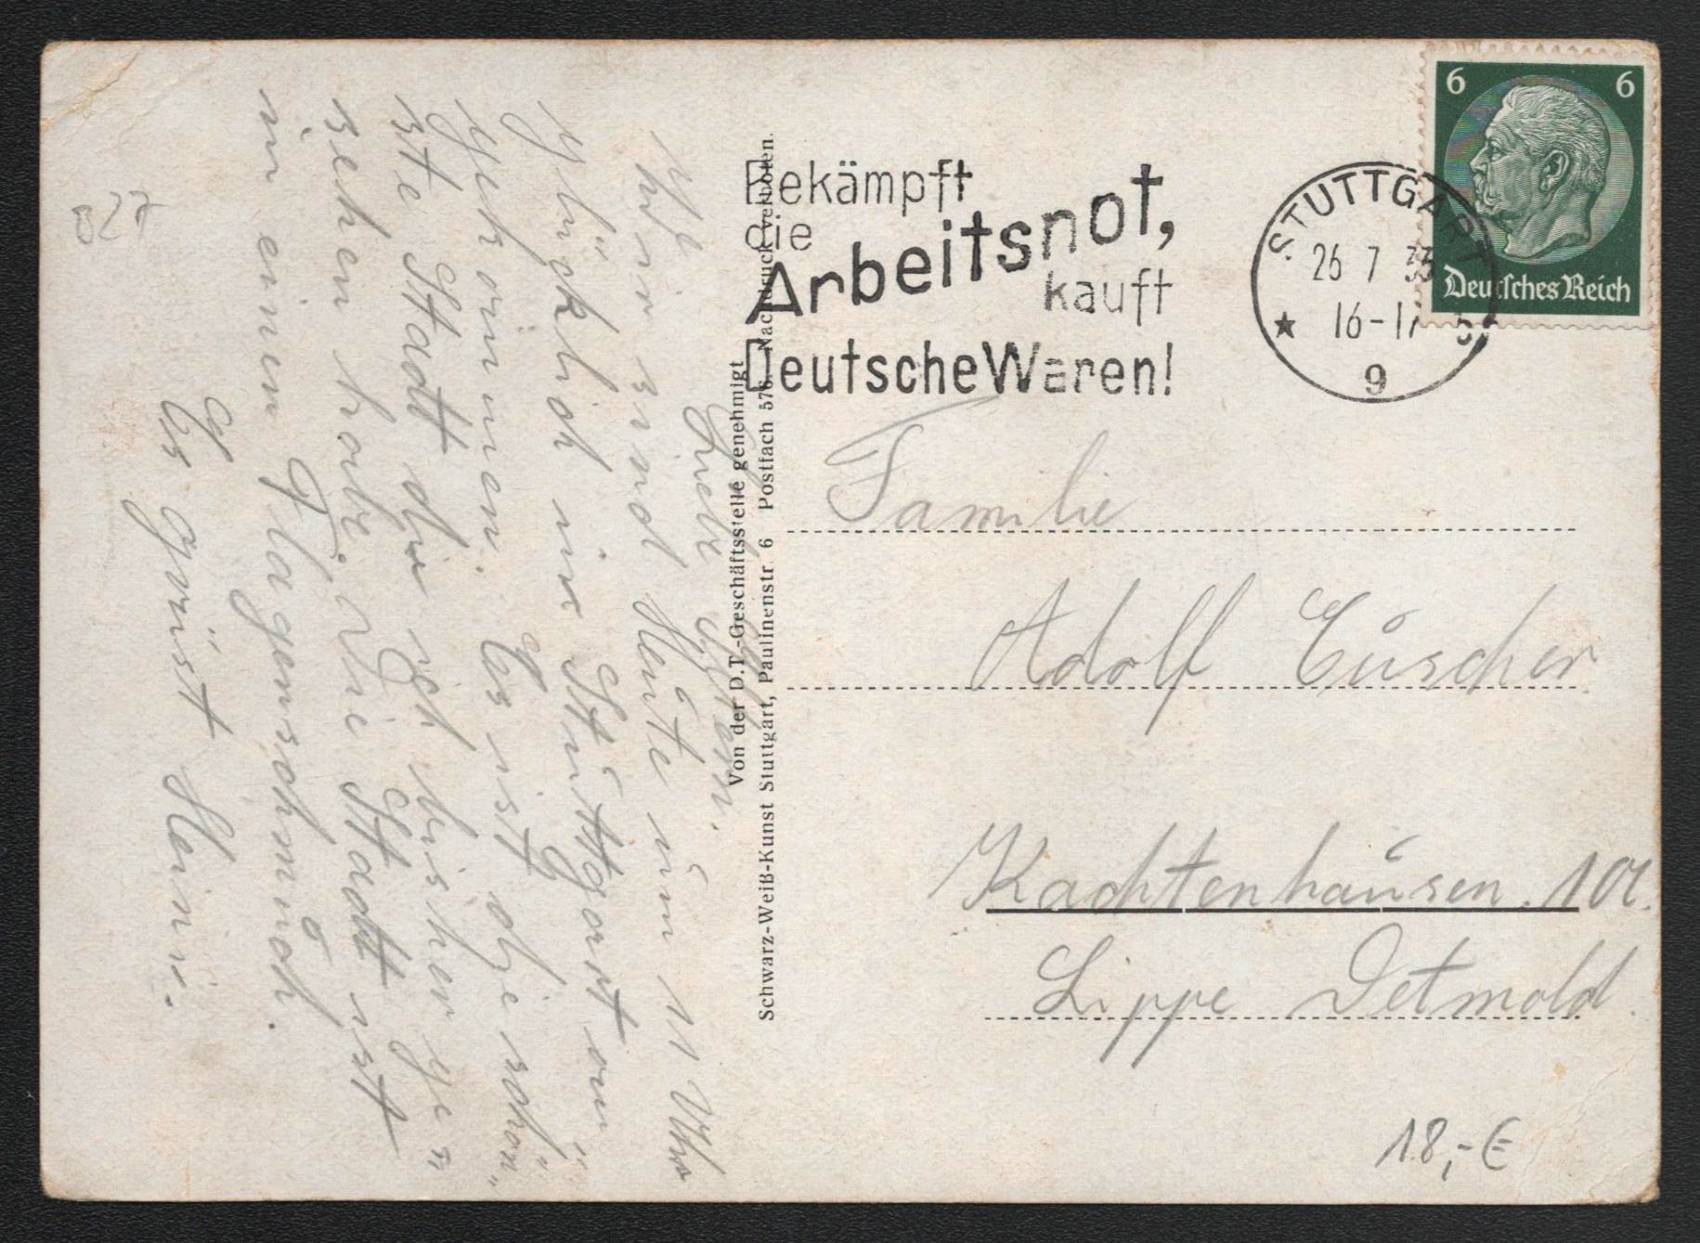 Liebe Eltern.
Wir sind Heute um 11 Uhr
glücklich in Stuttgart an"
gekommen. Es ist die schön"
ste Stadt die ich bisher ge"
sehen habe. Die Stadt ist
in einem Flagenschmuck.
Es grüst Heini.
827
Von der D.T.-Geschäftsstelle genehmigt
Schwarz-Weiß-Kunst Stuttgart, Paulinenstr 6 Postfach 576. Nachdruck verboten.
Bekämpft
die
Arbeitsnot,
kauft
Deutsche Waren!
STUTTGART
26 7 33
16-17
9
6 6
Deutsches Reich
Familie
Adolf Cuscher
Kachtenhausen. 101.
Lippe Detmold.
18,-€